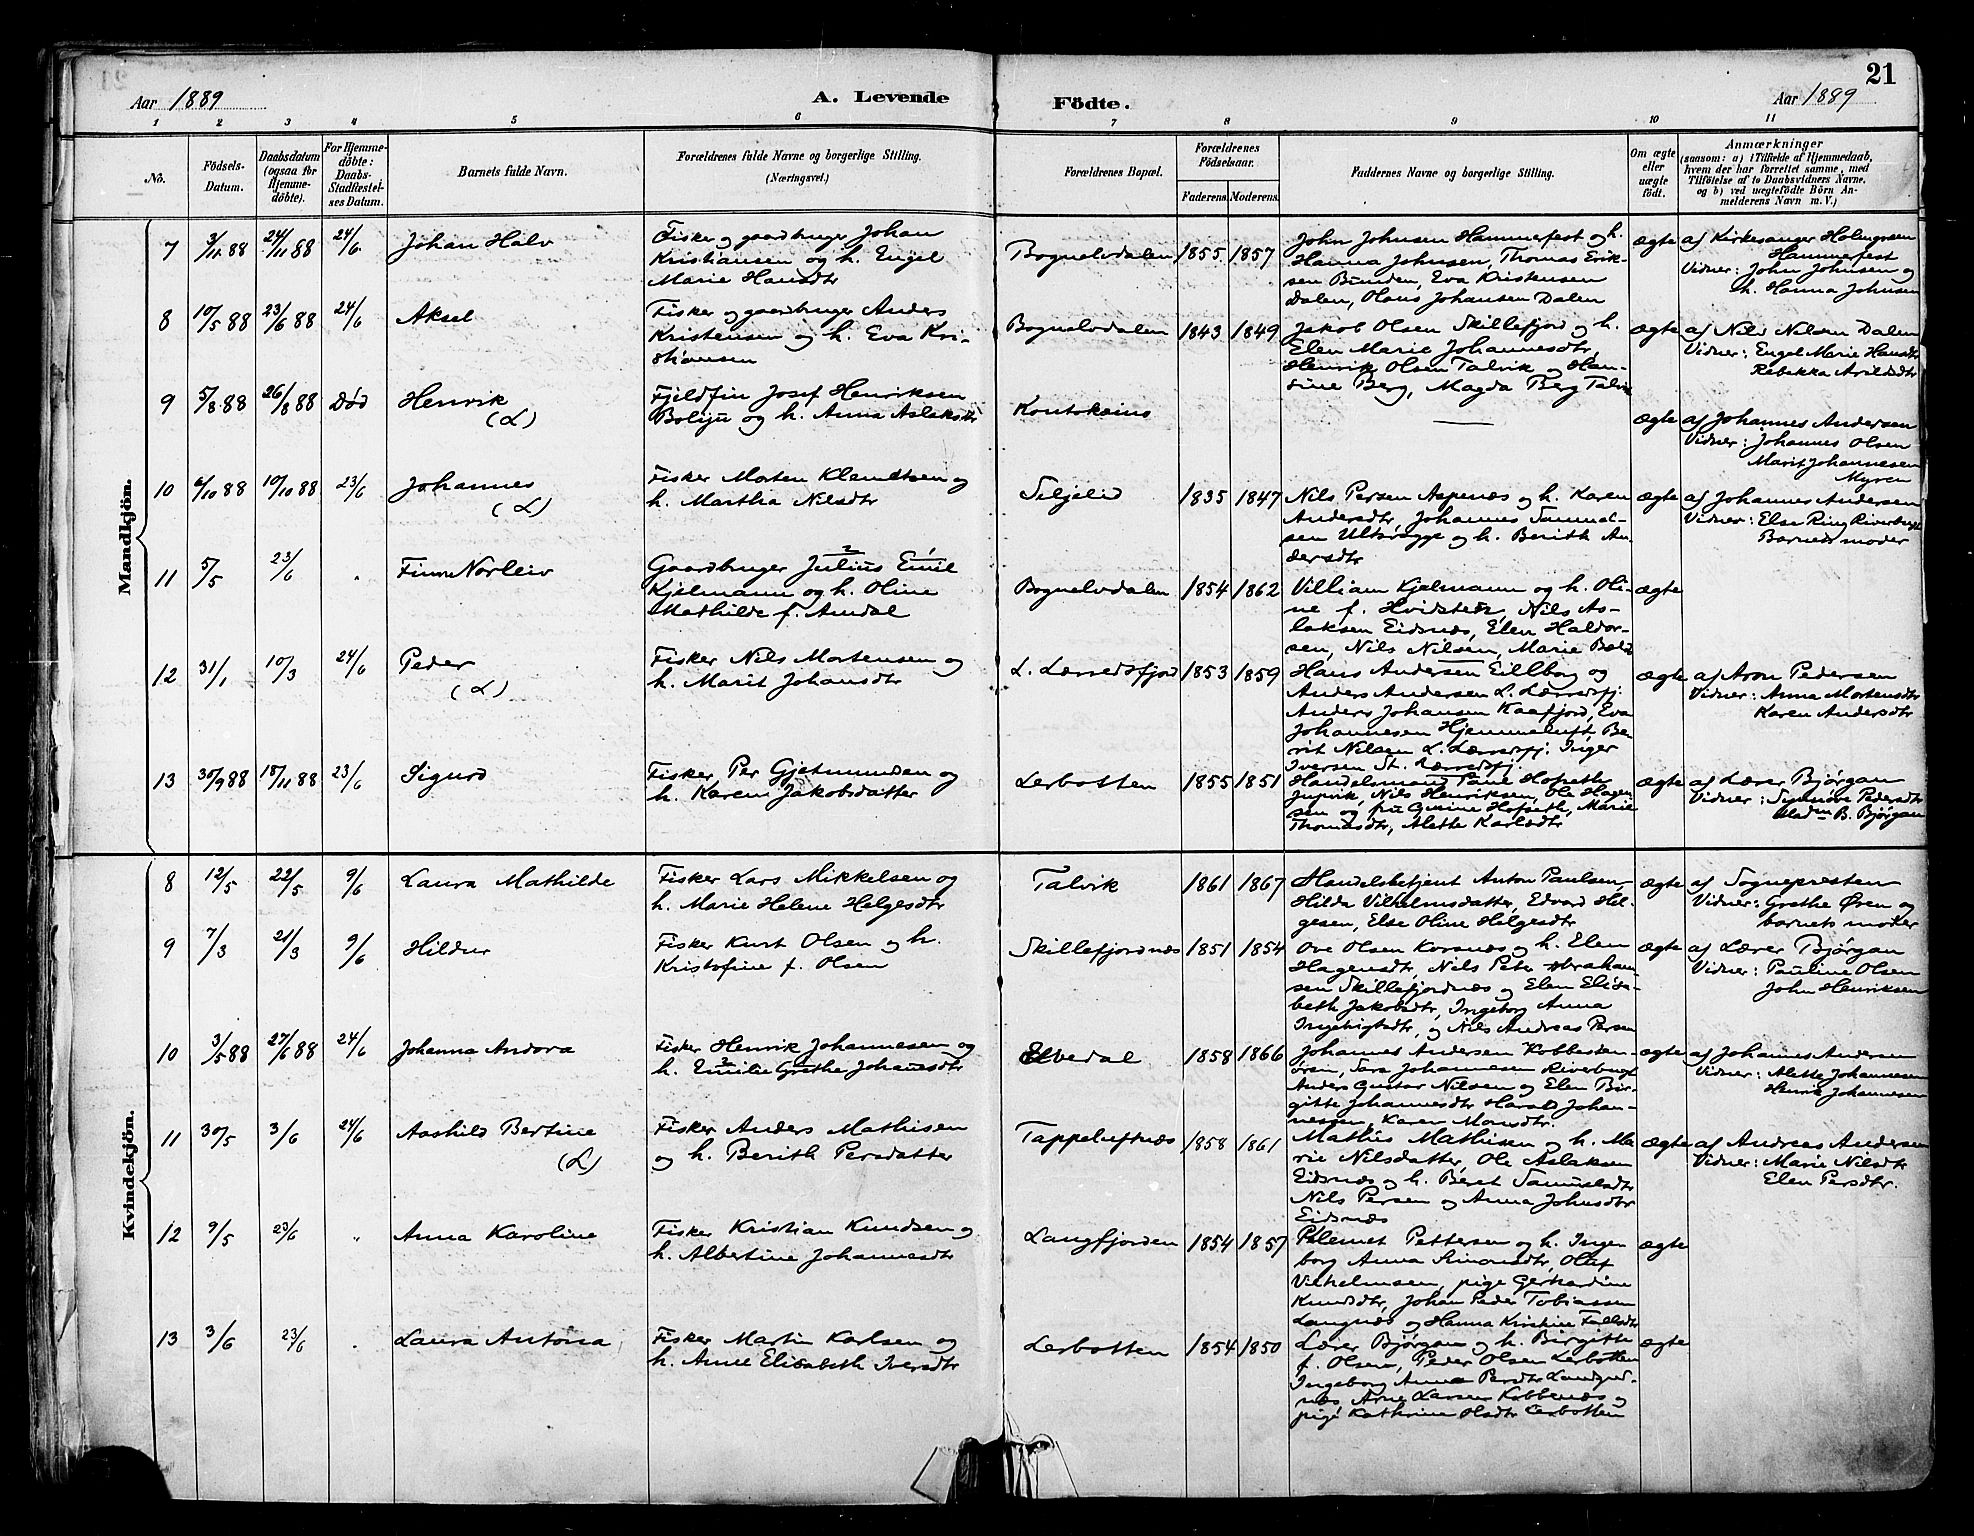 21
Aar 1889 A. Levende Födte. Aar 1889
1 2 3 4 5 6 7 8 9 10 11
No. Födsels-Datum. Daabsdatum (ogsaa for Hjemme-döbte). For Hjemme-döbte: Daabs-Stadfæstel-ses Datum. Barnets fulde Navn. Forældrenes fulde Navne og borgerlige Stilling. (Næringsvei.) Forældrenes Bopæl. Forældrenes Födselsaar. Faderens Moderens. Faddernes Navne og borgerlige Stilling. Om ægte eller uægte födt. Anmærkninger (saasom: a) i Tilfælde af Hjemmedaab, hvem der har forrettet samme, med Tilföielse af to Daabsvidners Navne, og b) ved uægtefödte Börn An-melderens Navn m. V.)
Mandkjön.
7 3/11 88 24/11 88 24/6 Johan Halv
Fisker og gaardbruger Johan
Kristiansen og h. Engel
Marie Hansdtr
Bognelvdalen 1855 1857
John Johnsen Hammerfest og h.
Hanna Johnsen, Thomas Erik-
sen Bunden, Eva Kristensen
Dalen, Hans Johansen Dalen
ægte
af Kirkesanger Holmgrsen
Hammerfest
Vidner: John Johnsen og
h. Hanna Johnsen
8 10/5 88 23/6 88 24/6 Aksel
Fisker og gaardbruger Anders
Kristensen og h. Eva Kri-
stiansen
Bognelvdalen 1843 1849
Jakob Olsen Skillefjord og h.
Elen Marie Johannesdtr,
Henrik Olsen Talvik og Han-
sine Berg, Magda Berg Talvik
ægte
af Nils Nilsen Dalen
Vidner: Engel Marie Hansdtr
Rebekka Arildsdtr
9 5/8 88 26/8 88 Død Henrik
(L)
Fjeldfin Josef Henriksen
og h. Anna Aslaksdtr
Kontokeino
—
ægte
af Johannes Andersen
Vidner: Johannes Olsen
Marit Johannesen
Myren
10 6/10 88 10/10 88 23/6 Johannes
(L)
Fisker Morten Klemetsen og
h. Martha Nilsdtr
Seljelid 1835 1847
Nils Persen Aspenæs og h. Karen
Andersdtr, Johannes Samuel-
sen og h. Berith An-
dersdtr
ægte
af Johannes Andersen
Vidner: Else Ring
Barnets moder
11 5/5 23/6 " Finn Norleiv
Gaardbruger Julius Emil
Kjelmann og h. Oline
Mathilde f. Amdal
Bognelvdalen 1854 1862
Villiam Kjelmann og h. Oli-
ne f. Hvidsteen, Nils As-
laksen Eidsnæs, Elen Haldor-
sen, Nils Nilsen, Marie
ægte
12 31/1 10/3 24/6 Peder
(L)
Fisker Nils Mortensen og
h. Marit Johansdtr
L. Lerresfjord 1853 1859
Hans Andersen og
Anders Andersen L. Lerresfj.
Anders Johansen Kaafjord, Eva
Johannesen Hjemmeluft, Be-
rit Nilsen L. Lerresfj. Inger
Iversen St. Lerresfj.
ægte
af Aron Pedersen
Vidner: Anna Mortensdtr
Karen Andersdtr
13 30/9 88 18/11 88 23/6 Sigurd
Fisker Per Gjetmundsen og
h. Karen Jakobsdatter
Lerbotten 1855 1851
Handelsmand Hofseth
Nils Henriksen, Ole Hagen-
sen og frú Hofseth, Marie
Thomasdtr, Alette Karlsdtr
ægte
af Lærer Bjørgan
Vidner: Synnøve Pedersdtr
Madm B. Bjørgan
Kvindekjön.
8 12/5 22/5 9/6 Laura Mathilde
Fisker Lars Mikkelsen og
h. Marie Helene Helgesdtr
Talvik 1861 1867
Handelsbetjent Anton Paulsen,
Hilda Vilhelmsdatter, Edvard Hel-
gesen, Else Oline Helgesdtr
ægte
af Sognepresten
Vidner: Grethe Øren og
barnets moder
9 7/3 21/3 9/6 Hildur
Fisker Kurt Olsen og h.
Kristofine f. Olsen
Skillefjordnæs 1851 1854
Ove Olsen Korsnæs og h. Elen
Hagensdtr, Nils Peter Abraham-
sen Skillefjordnæs og Elen Elisa-
beth Jakobsdtr, Ingeborg Anna
Ingebrigtsdtr, og Nils Andreas Persen
ægte
af Lærer Bjørgan
Vidner: Pauline Olsen
John Henriksen
10 3/5 88 27/6 88 24/6 Johanna Andora
Fisker Henrik Johannesen og
h. Emilie Grethe Johansdtr
Elvedal 1858 1866
Johannes Andersen
Sara Johannesen
Anders Gustav Nilsen og Elen Bir-
gitte Johannesdtr Harald Johan-
nessen, Karen Monsdtr.
ægte
af Johannes Andersen
Vidner: Alette Johannesen
Henrik Johannesen
11 30/5 3/6 24/6 Aashild Bertine
(L)
Fisker Anders Mathisen
og h. Berith Persdatter
Tappeluftnæs 1858 1861
Mathis Mathisen og h. Ma-
rie Nilsdatter, Ole Aslaksen
Eidsnæs og h. Beret Samuelsdtr
Nils Persen og Anna Johnsdtr
Eidsnæs
ægte
af Andreas Andersen
Vidner: Marie Nilsdtr
Elen Persdtr.
12 9/5 23/6 " Anna Karoline
Fisker Kristian Knudsen og
h. Albertine Johannesdtr
Langfjorden 1854 1857
Pettersen og h. Inge-
borg Anna Simonsdtr, Olaf
Vilhelmsen, pige Gerhardine
Knudsdtr, Johan Peder Tobiassen
Langnæs og Hanna Kristine
ægte
13 3/6 23/6 " Laura Antona
Fisker Martin Karlsen og
h. Anne Elisabeth Iversdtr
Lerbotten 1854 1850
Lærer Bjørgan og h. Birgitte
f. Olsen, Peder Olsen Lerbotten
Ingeborg Anna Persdtr
næs, Arne Larsen Kobbenæs og
pige Kathrine Lerbotten
ægte